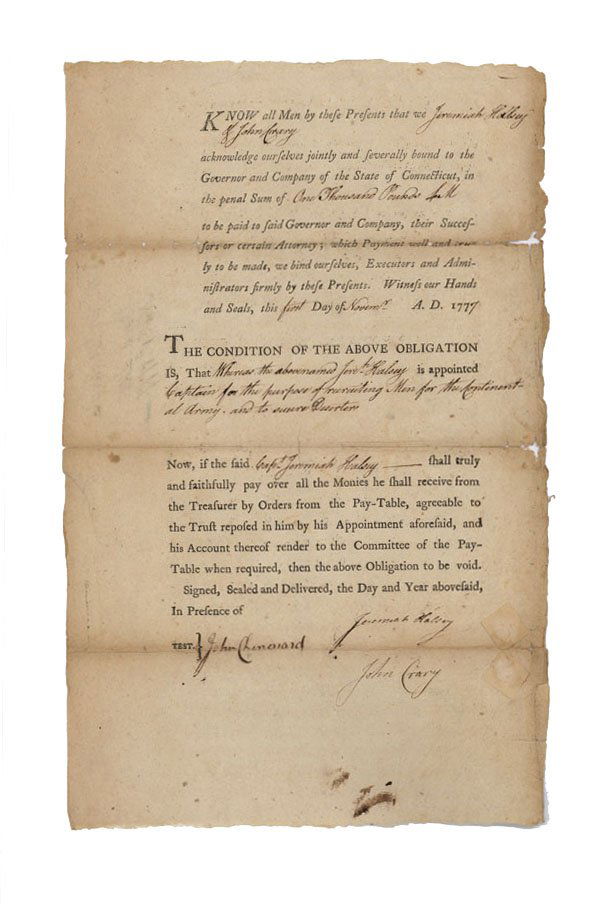 KNOW all Men by theſe Preſents that we Jeremiah Halsey
& John Crary
acknowledge ourſelves jointly and ſeverally bound to the
Governor and Company of the State of Connecticut, in
the penal Sum of One Thousand Pounds LM
to be paid to ſaid Governor and Company, their Succeſ-
ſors or certain Attorney; which Payment well and tru-
ly to be made, we bind ourſelves, Executors and Admi-
niſtrators firmly by theſe Preſents. Witneſs our Hands
and Seals, this first Day of Novemr. A. D. 1777
THE CONDITION OF THE ABOVE OBLIGATION
IS, That Whereas the abovenamed Jerh. Halsey is appointed
Captain for the purpose of recruiting Men for the Continent-
al Army. and to secure Deserters
Now, if the ſaid Capt. Jeremiah Halsey — ſhall truly
and faithfully pay over all the Monies he ſhall receive from
the Treaſurer by Orders from the Pay-Table, agreeable to
the Truſt repoſed in him by his Appointment aforeſaid, and
his Account thereof render to the Committee of the Pay-
Table when required, then the above Obligation to be void.
Signed, Sealed and Delivered, the Day and Year aboveſaid,
In Preſence of
Jeremiah Halsey
TEST. } John Chenevard
John Crary